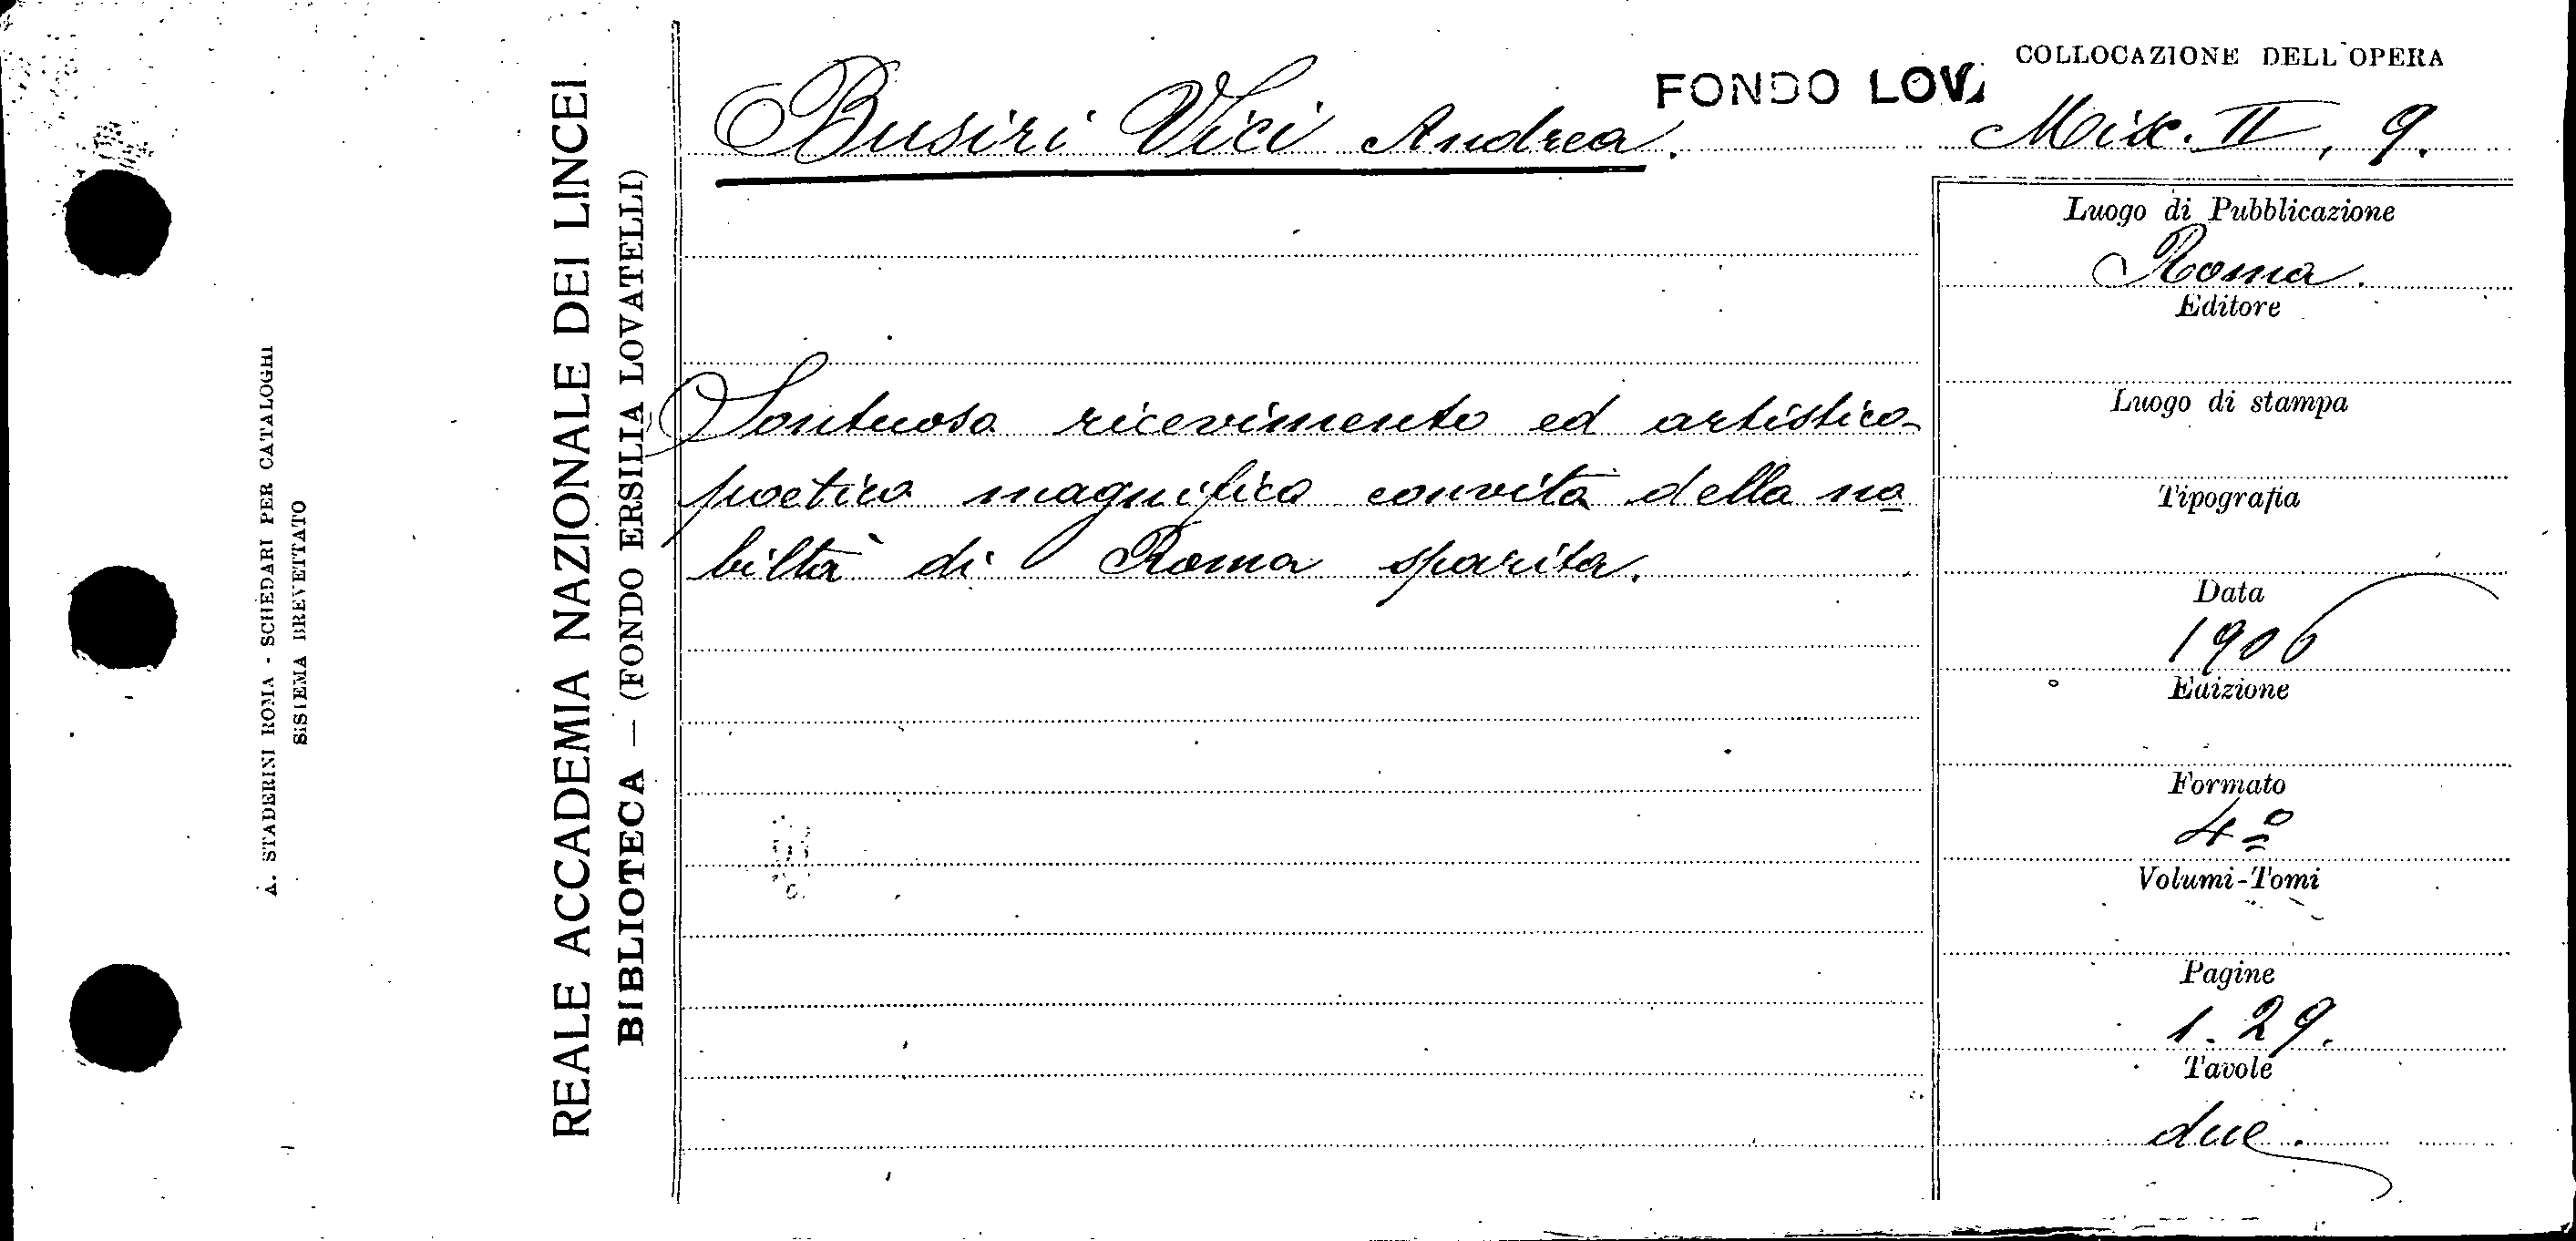 A. STADERINI ROMA - SCHEDARI PER CATALOGHI
SISTEMA BREVETTATO
REALE ACCADEMIA NAZIONALE DEI LINCEI
BIBLIOTECA — (FONDO ERSILIA LOVATELLI)
Busiri Vici Andrea.
FONDO LOV.
COLLOCAZIONE DELL'OPERA
Misc. II, 9.
Sontuoso ricevimento ed artistico-
poetico magnifico convito della no
biltà di Roma sparita.
Luogo di Pubblicazione
Roma.
Editore
Luogo di stampa
Tipografia
Data
1906
Edizione
Formato
4º
Volumi-Tomi
Pagine
1.29.
Tavole
due.